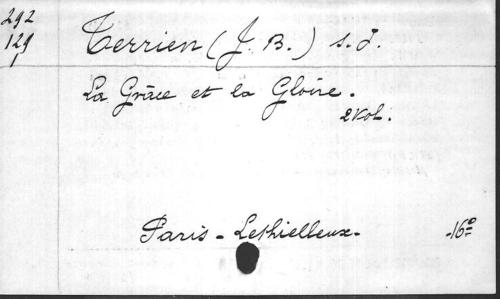 292
129
1
Terrien (J. B.) s. J.
La Grâce et la Gloire.
2 vol.
Paris - Lethielleux - -16º